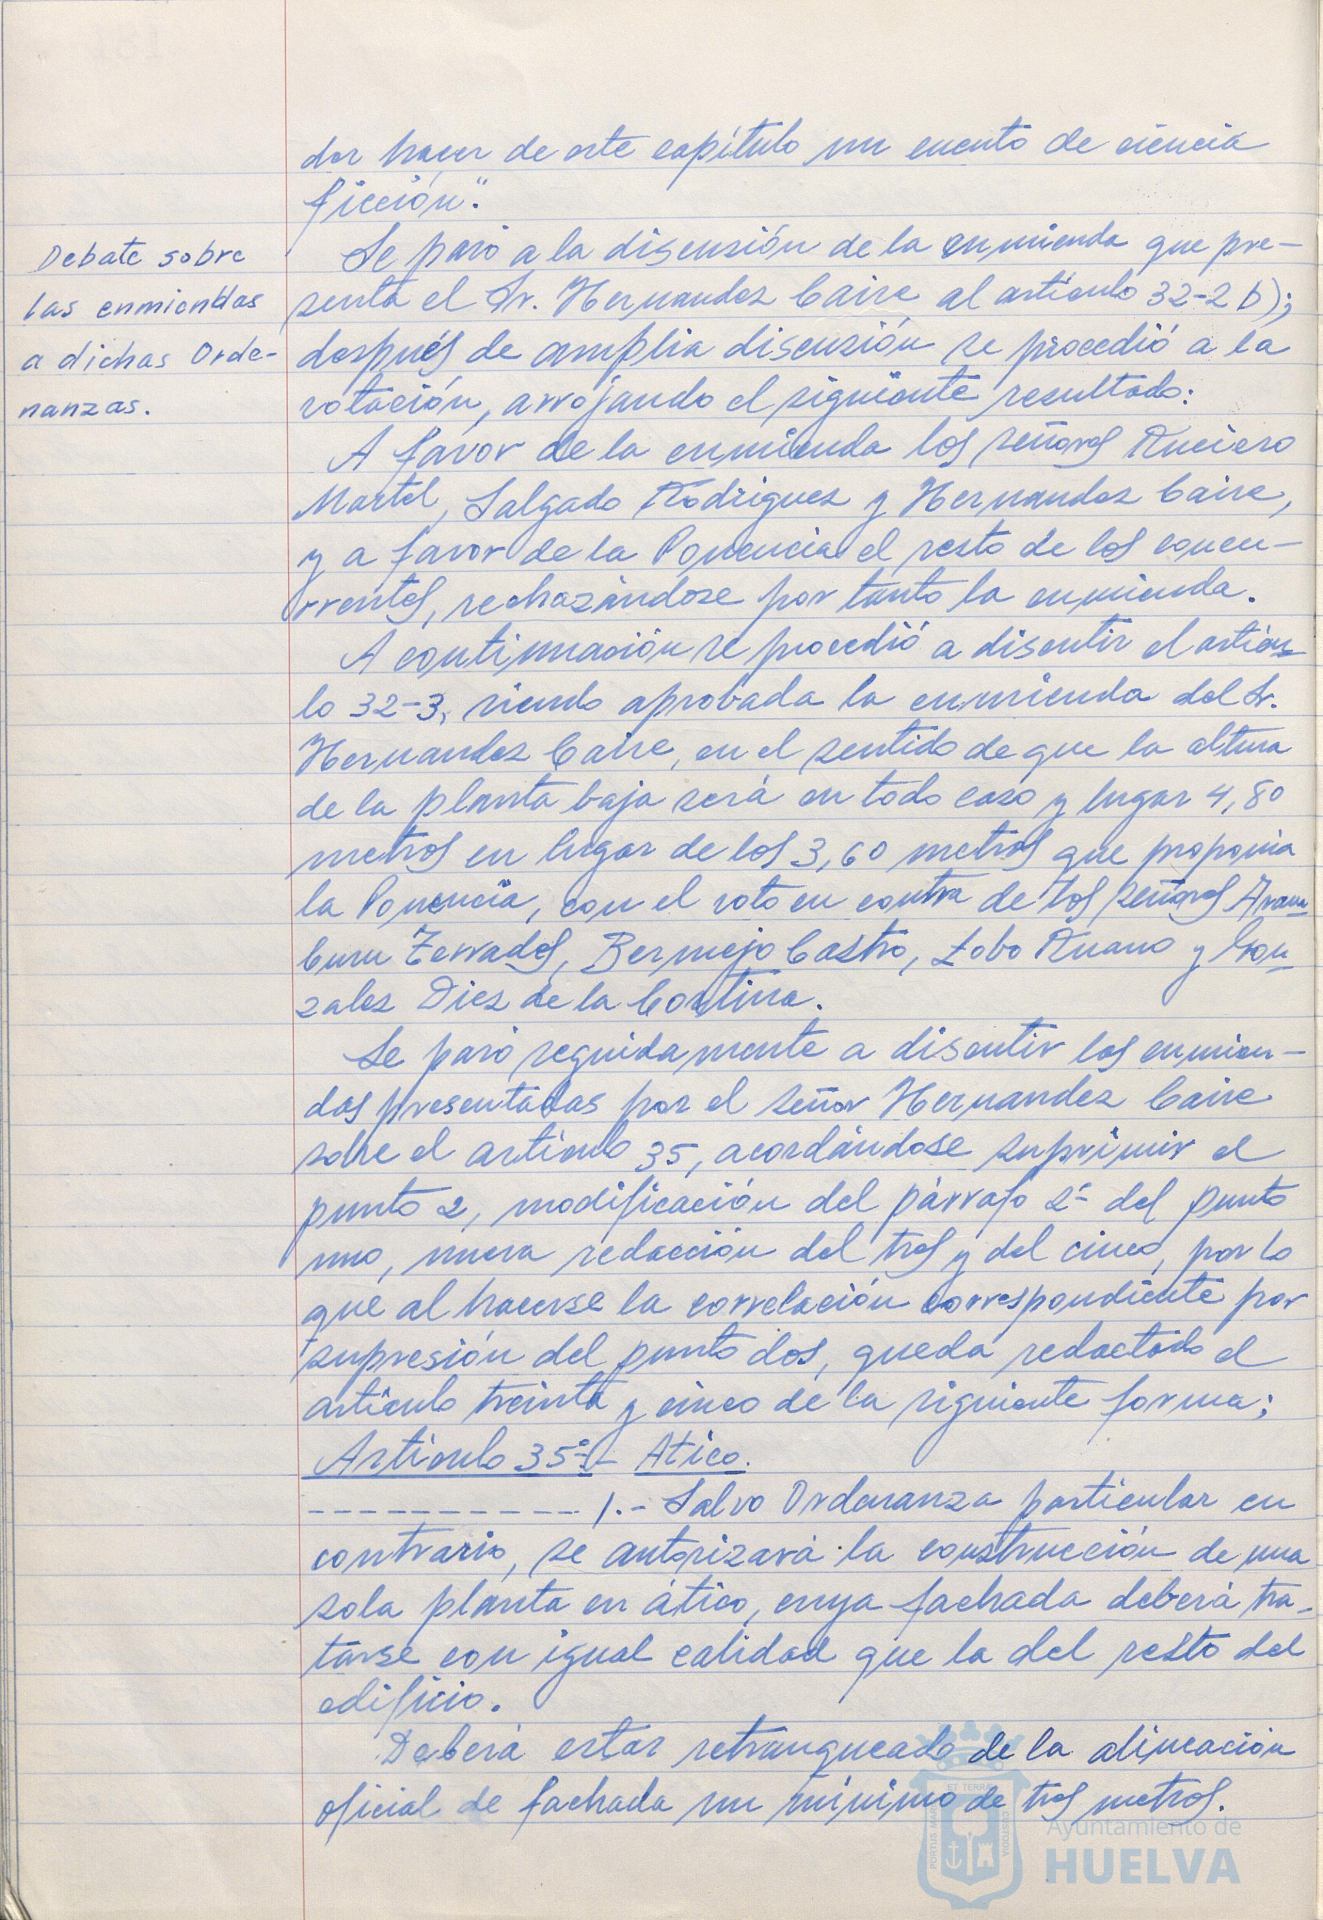 dor hacer de este capítulo un cuento de ciencia
ficción".
Debate sobre
las enmiendas
a dichas Orde-
nanzas.
Se pasó a la discusión de la enmienda que pre-
senta el Sr. Hernandez Caire al artículo 32-2 b);
después de amplia discusión se procedió a la
votación, arrojando el siguiente resultado:
A favor de la enmienda los señores Ruciero
Martel, Salgado Rodriguez y Hernandez Caire,
y a favor de la Ponencia el resto de los concu-
rrentes, rechazándose por tanto la enmienda.
A continuación se procedió a discutir el artícu-
lo 32-3, siendo aprobada la enmienda del Sr.
Hernandez Caire, en el sentido de que la altura
de la planta baja será en todo caso y lugar 4,80
metros en lugar de los 3,60 metros que proponia
la Ponencia, con el voto en contra de los señores Aram
buru Terrades, Bermejo Castro, Lobo Ruano y Gon
zalez Diez de la Cortina.
Se pasó seguidamente a discutir las enmien-
das presentadas por el señor Hernandez Caire
sobre el artículo 35, acordándose suprimir el
punto 2, modificación del párrafo 2º del punto
uno, nueva redacción del tres y del cinco, por lo
que al hacerse la correlación correspondiente por
supresión del punto dos, queda redactado el
artículo treinta y cinco de la siguiente forma;
Artículo 35º.- Atico.
----------- 1.- Salvo Ordenanza particular en
contrario, se autorizará la construcción de una
sola planta en ático, cuya fachada deberá tra-
tarse con igual calidad que la del resto del
edificio.
Deberá estar retranqueado de la alineación
oficial de fachada un mínimo de tres metros.
Ayuntamiento de
HUELVA